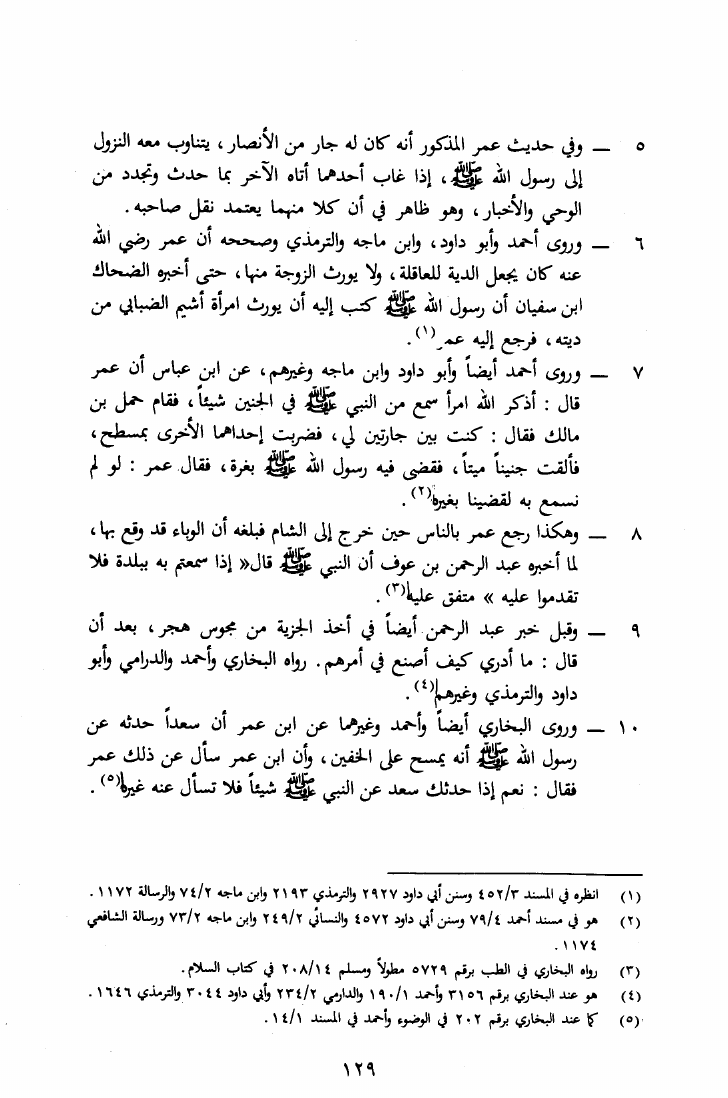 ٥ — وفي حديث عمر المذكور أنه كان له جار من الأنصار، يتناوب معه النزول
إلى رسول الله ﷺ، إذا غاب أحدهما أتاه الآخر بما حدث وتجدد من
الوحي والأخبار، وهو ظاهر في أن كلا منهما يعتمد نقل صاحبه.
٦ — وروى أحمد وأبو داود، وابن ماجه والترمذي وصححه أن عمر رضي الله
عنه كان يجعل الدية للعاقلة، ولا يورث الزوجة منها، حتى أخبره الضحاك
ابن سفيان أن رسول الله ﷺ كتب إليه أن يورث امرأة أشيم الضبابي من
ديته، فرجع إليه عمر(١).
٧ — وروى أحمد أيضاً وأبو داود وابن ماجه وغيرهم، عن ابن عباس أن عمر
قال: أذكر الله امرأ سمع من النبي ﷺ في الجنين شيئاً، فقام حمل بن
مالك فقال: كنت بين جارتين لي، فضربت إحداهما الأخرى بمسطح،
فألقت جنيناً ميتاً، فقضى فيه رسول الله ﷺ بغرة، فقال عمر: لو لم
نسمع به لقضينا بغيره(٢).
٨ — وهكذا رجع عمر بالناس حين خرج إلى الشام فبلغه أن الوباء قد وقع بها،
لما أخبره عبد الرحمن بن عوف أن النبي ﷺ قال« إذا سمعتم به ببلدة فلا
تقدموا عليه » متفق عليه(٣).
٩ — وقبل خبر عبد الرحمن أيضاً في أخذ الجزية من مجوس هجر، بعد أن
قال: ما أدري كيف أصنع في أمرهم. رواه البخاري وأحمد والدرامي وأبو
داود والترمذي وغيرهم(٤).
١٠ — وروى البخاري أيضاً وأحمد وغيرهما عن ابن عمر أن سعداً حدثه عن
رسول الله ﷺ أنه يمسح على الخفين، وأن ابن عمر سأل عن ذلك عمر
فقال: نعم إذا حدثك سعد عن النبي ﷺ شيئاً فلا تسأل عنه غيره(٥).
(١) انظره في المسند ٤٥٢/٣ وسنن أبي داود ٢٩٢٧ والترمذي ٢١٩٣ وابن ماجه ٧٤/٢ والرسالة ١١٧٢.
(٢) هو في مسند أحمد ٧٩/٤ وسنن أبي داود ٤٥٧٢ والنسائي ٢٤٩/٢ وابن ماجه ٧٣/٢ ورسالة الشافعي
١١٧٤.
(٣) رواه البخاري في الطب برقم ٥٧٢٩ مطولاً ومسلم ٢٠٨/١٤ في كتاب السلام.
(٤) هو عند البخاري برقم ٣١٥٦ وأحمد ١٩٠/١ والدارمي ٢٣٤/٢ وأبي داود ٣٠٤٤ والترمذي ١٦٤٦.
(٥) كما عند البخاري برقم ٢٠٢ في الوضوء وأحمد في المسند ١٤/١.
١٢٩